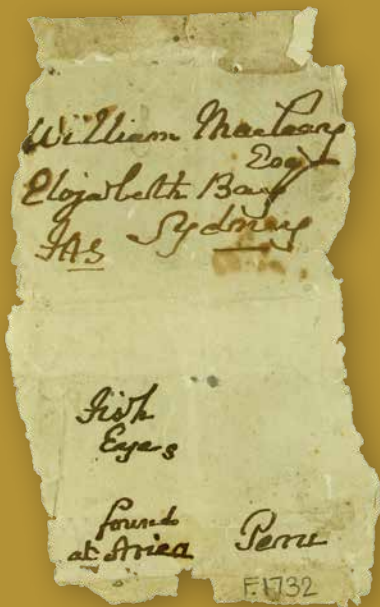 William Macleay
Esqr
Elizabeth Bay
Sydney
JAS
Fish
Eyes
found
at Arica Peru
F.1732